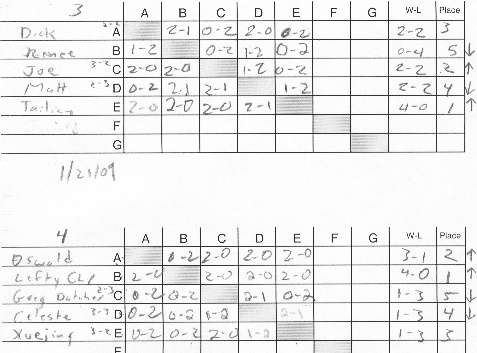 3 A B C D E F G W-L Place
Dick 2-2 A 2-1 0-2 2-0 0-2 2-2 3
Renee B 1-2 0-2 1-2 0-2 0-4 5 ↓
Joe 3-2 C 2-0 2-0 1-2 0-2 2-2 2 ↑
Matt 2-3 D 0-2 2-1 2-1 1-2 2-2 4 ↓
E 2-0 2-0 2-0 2-1 4-0 1 ↑
F
G
1/21/09
4 A B C D E F G W-L Place
Oswald A 0-2 2-0 2-0 2-0 3-1 2 ↑
Lefty B 2-0 2-0 2-0 2-0 4-0 1 ↑
Greg 2-3 C 0-2 0-2 2-1 0-2 1-3 5 ↓
Celeste 3-2 D 0-2 0-2 1-2 2-1 1-3 4 ↓
Xuejing 3-2 E 0-2 0-2 2-0 1-2 1-3 3
F